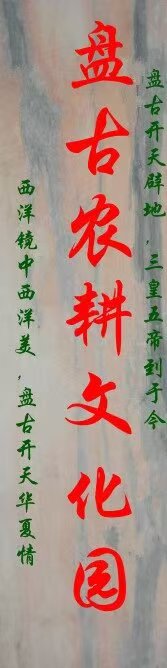 盘古开天辟地，三皇五帝到于今
盘古农耕文化园
西洋镜中西洋美，盘古开天华夏情